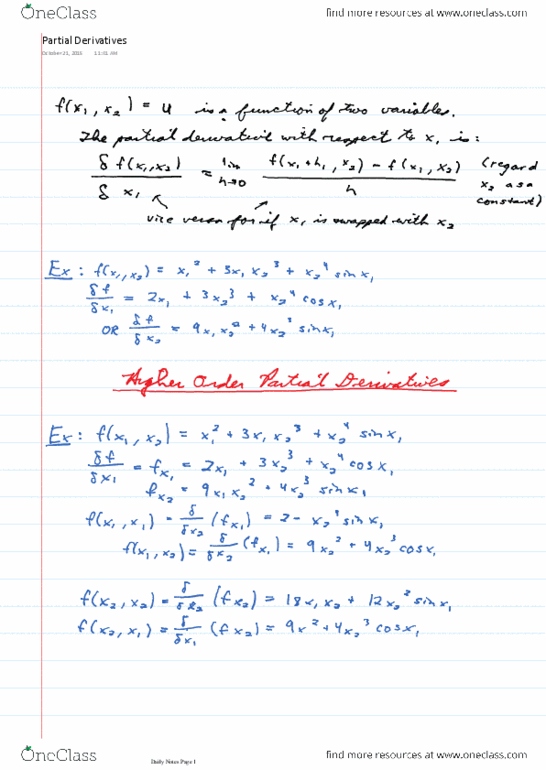 OneClass
find more resources at www.oneclass.com
Partial Derivatives
October 21, 2016 11:41 AM
f(x₁, x₂) = u is a function of two variables.
The partial derivative with respect to x, is:
δ f(x₁, x₂) / δ x₁ = lim h→0 f(x₁ + h, x₂) - f(x₁, x₂) / h (regard x₂ as a constant)
vice versa for if x₁ is swapped with x₂
Ex: f(x₁, x₂) = x₁² + 3x₁ x₂³ + x₂⁴ sin x₁
δf/δx₁ = 2x₁ + 3x₂³ + x₂⁴ cos x₁
OR δf/δx₂ = 9x₁ x₂² + 4x₂³ sin x₁
Higher Order Partial Derivatives
Ex: f(x₁, x₂) = x₁² + 3x₁ x₂³ + x₂⁴ sin x₁
δf/δx₁ = fx₁ = 2x₁ + 3x₂³ + x₂⁴ cos x₁
fx₂ = 9x₁ x₂² + 4x₂³ sin x₁
f(x₁, x₁) = δ/δx₂ (fx₁) = 2 - x₂⁴ sin x₁
f(x₁, x₂) = δ/δx₂ (fx₁) = 9x₂² + 4x₂³ cos x₁
f(x₂, x₂) = δ/δx₂ (fx₂) = 18x₁ x₂ + 12x₂² sin x₁
f(x₂, x₁) = δ/δx₁ (fx₂) = 9x² + 4x₂³ cos x₁
OneClass
Daily Notes Page 1
find more resources at www.oneclass.com